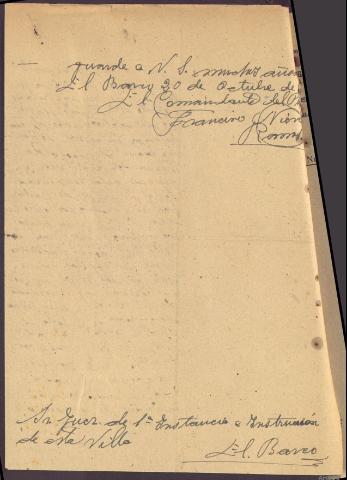 guarde a V. S. muchos años
El Barco 20 de Octubre de
El Comandante del
Francisco
Sr Juez de 1ª Instancia e Instrucción
de esta Villa
El Barco